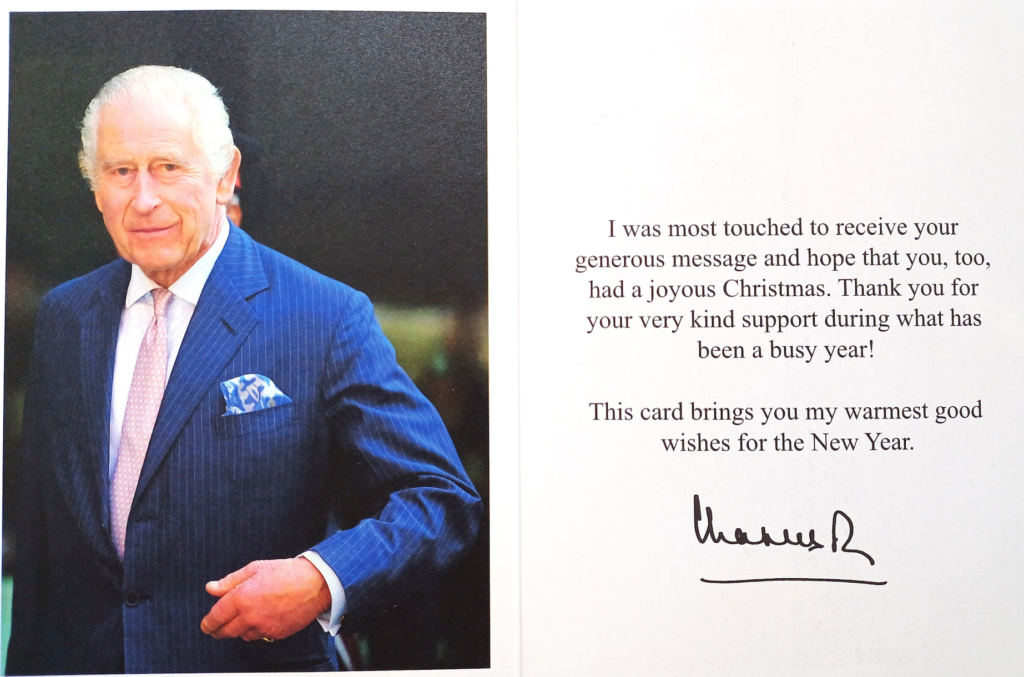 I was most touched to receive your
generous message and hope that you, too,
had a joyous Christmas. Thank you for
your very kind support during what has
been a busy year!
This card brings you my warmest good
wishes for the New Year.
Charles R